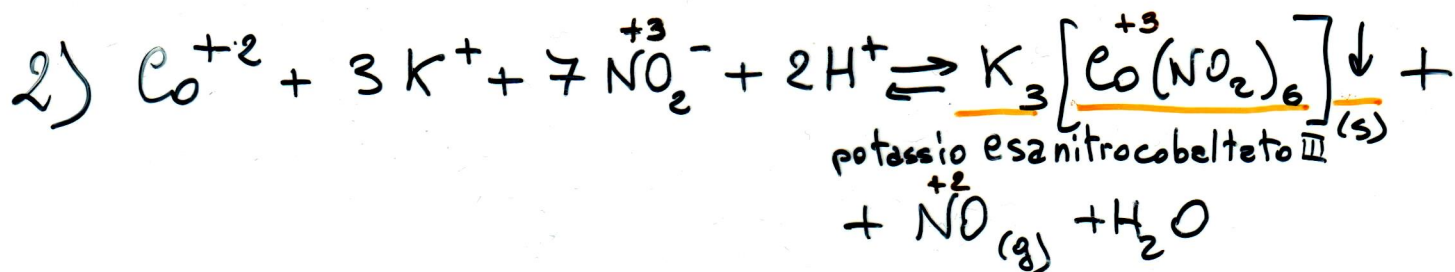 2) Co⁺² + 3 K⁺ + 7 NO₂⁻ + 2H⁺ ⇌ K₃[Co(NO₂)₆]↓(s) +
+3 +3
potassio esanitrocobaltato III
+2
+ NO(g) + H₂O